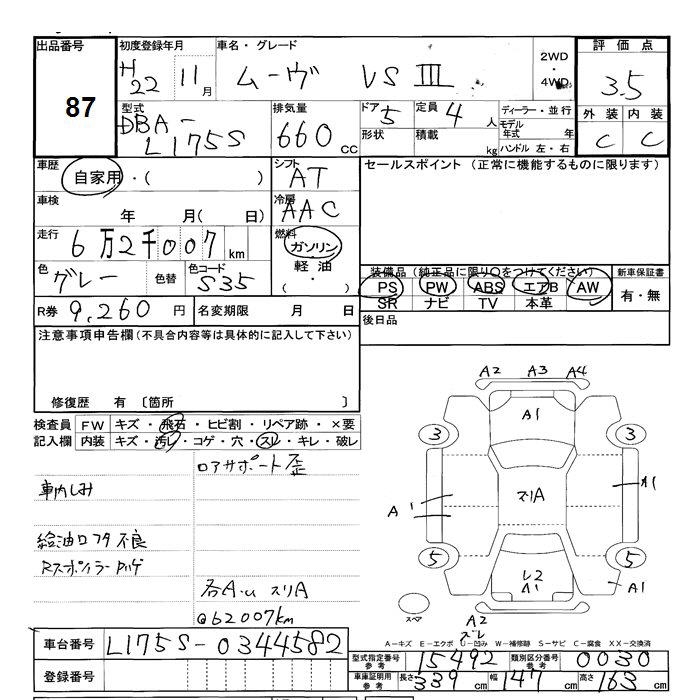 出品番号 初度登録年月 車名・グレード 2WD・4WD 評価点
87 H22 11月 ムーヴ VSⅢ 3.5
型式 排気量 ドア 5 定員 4人 ディーラー・並行 外装 内装
DBA-L175S 660cc 形状 積載 kg モデル年式 年 C C
ハンドル 左・右
車歴 自家用・( ) シフト AT セールスポイント (正常に機能するものに限ります)
車検 年 月( 日) 冷房 AAC
走行 6万2千007km 燃料 ガソリン
軽油
( ・ )
色 グレー 色替 色コード S35
装備品 (純正品に限り○をつけてください) 新車保証書
PS PW ABS エアB AW 有・無
SR ナビ TV 本革
R券 9,260円 名変期限 月 日
後日品
注意事項申告欄(不具合内容等は具体的に記入して下さい)
修復歴 有 〔箇所 〕
検査員 FW キズ・飛石・ヒビ割・リペア跡・×要
記入欄 内装 キズ・汚レ・コゲ・穴・スレ・キレ・破レ
ロアサポート歪
車内しみ
給油口フタ不良
各A.u スリA
@62007km
A2 A3 A4
A1
3 3
スリA
A1 A1
5 5
レ2
A1
A1
A2
ズレ
スペア
A-キズ E-エクボ U-凹み W-補修跡 S-サビ C-腐食 XX-交換済
車台番号 L175S-0344582
型式指定番号 参考 15492 類別区分番号 参考 0030
登録番号
車庫証明用 参考 長さ 339cm 幅 147cm 高さ 163cm